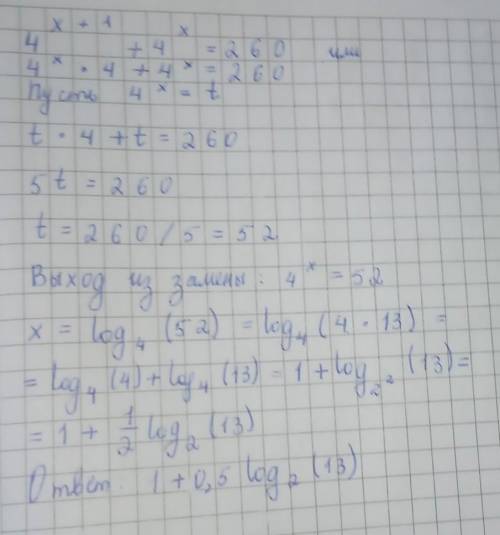 4^(x+1) + 4^x = 260 или
4^x · 4 + 4^x = 260
Пусть 4^x = t
t · 4 + t = 260
5t = 260
t = 260/5 = 52
Выход из замены: 4^x = 52
x = log₄(52) = log₄(4·13) =
= log₄(4) + log₄(13) = 1 + log_{2²}(13) =
= 1 + 1/2 log₂(13)
Ответ. 1 + 0,5 log₂(13)